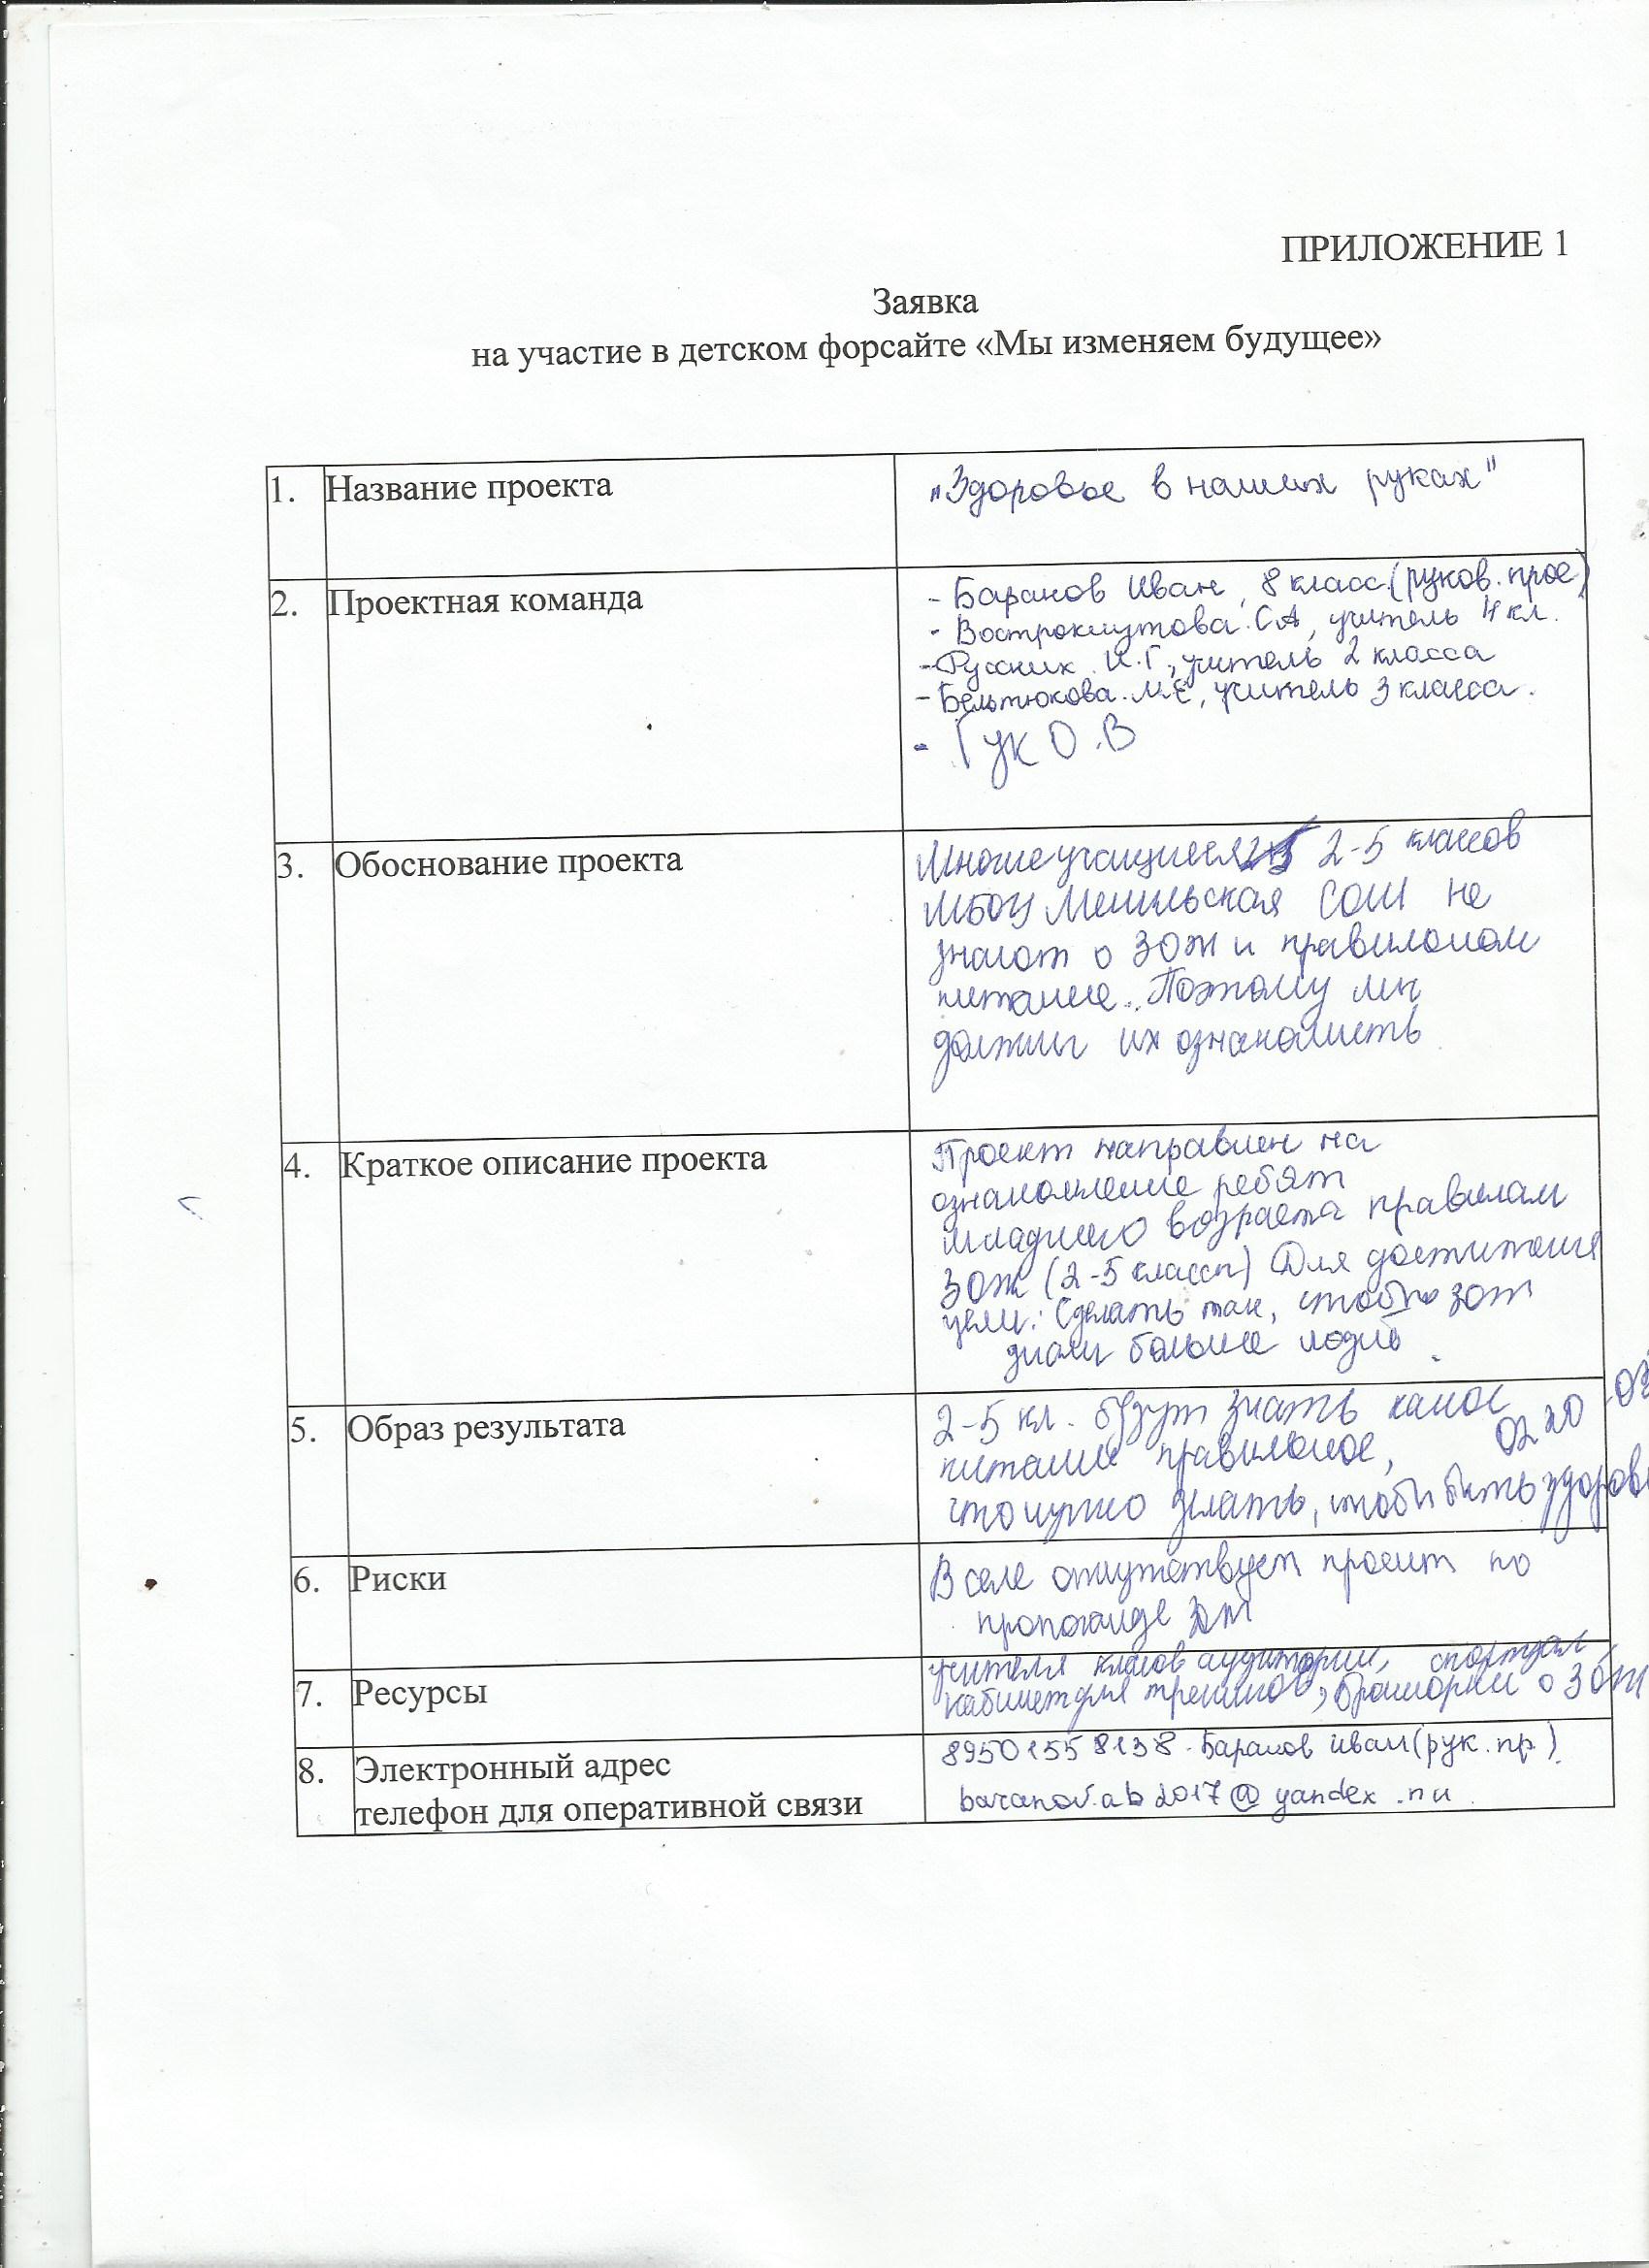 ПРИЛОЖЕНИЕ 1
Заявка
на участие в детском форсайте «Мы изменяем будущее»
1. Название проекта
„Здоровье в наших руках"
2. Проектная команда
- Баранов Иван, 8 класс (руков. прое)
- Вострокнутова С А, учитель 4 кл.
- Русских И.Г., учитель 2 класса
- Бельтюкова М.Е, учитель 3 класса.
- Гук О.В
3. Обоснование проекта
Многие учащиеся 2-5 классов
МБОУ Мишильская СОШ не
знают о ЗОЖ и правильном
питание. Поэтому мы
должны их ознакомить
4. Краткое описание проекта
Проект направлен на
ознакомление ребят
младшего возраста правилам
ЗОЖ (2-5 классы) Для достижения
цели: Сделать так, чтобы зож
знали больше людей.
5. Образ результата
2-5 кл. будут знать какое
питание правильное,
что нужно делать, чтобы быть здоров
6. Риски
В селе отсутствует проект по
пропоганде зож
7. Ресурсы
учителя классов аудитории, спортзал
кабинет для тренингов, брошюрки о ЗОЖ
8. Электронный адрес
телефон для оперативной связи
89501558138 - Баранов Иван (рук. пр)
baranov.ab2017@yandex.ru